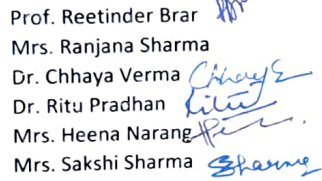 Prof. Reetinder Brar
Mrs. Ranjana Sharma
Dr. Chhaya Verma Chhaya
Dr. Ritu Pradhan Ritu
Mrs. Heena Narang
Mrs. Sakshi Sharma Sharma